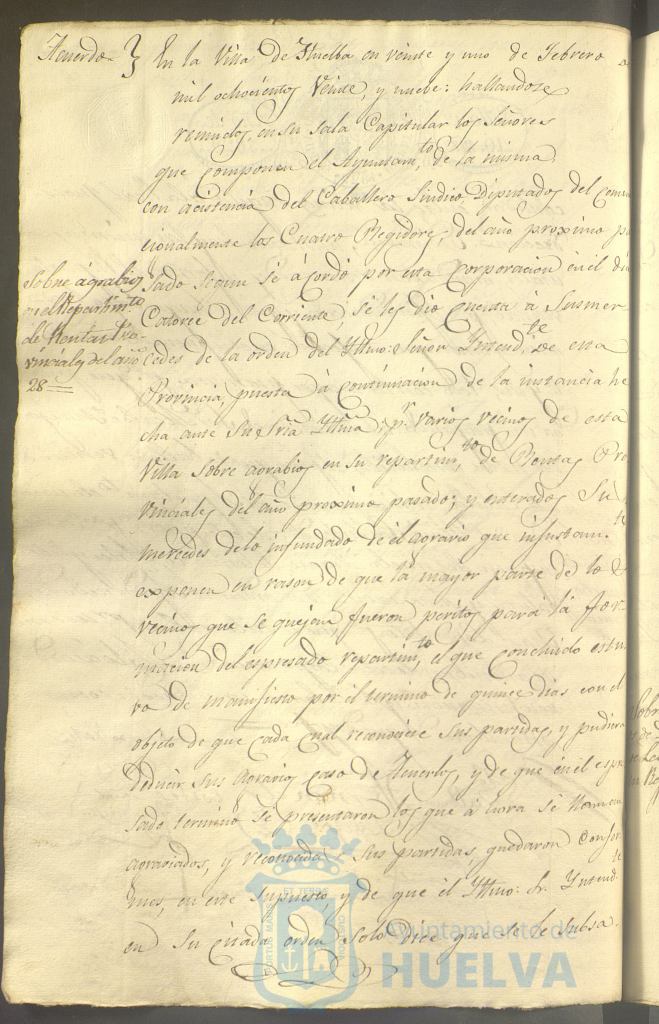 Acuerdo } En la Villa de Huelba en veinte y uno de Febrero
mil ochocientos Veinte, y nuebe: hallandose
reunidos, en su sala Capitular los Señores
que componen el Ayuntam.to de la misma
con acistencia del Caballero Sindico Diputados del Comun
cionalmente los Cuatro Regidores, del año proximo pa
Sobre agrabios
en el Repartim.to
de Rentas Pro-
vinciales del año
28=
sado segun se acordó por esta Corporacion en el dia
Catorce del Corriente, se les dio Cuenta á Susmer
cedes de la orden del Yltmo: Señor Yntend.te de esta
Provincia, puesta á continuacion de la instancia he
cha ante Su Sria Yltma, p.r varios vecinos de esta
Villa sobre agrabios en su repartim.to de Rentas Pro
vinciales del año proximo pasado; y enterados Su
mercedes delo infundado de el agravio que injustam.te
exponen en rason de que la mayor parte de lo
vecinos que se quejan, fueron peritos para la for
macion del espresado repartim.to, el que concluido estu
vo de manifiesto por el termino de quince dias con el
objeto de que cada cual reconociese sus partidas, y pudiera
deducir sus agravios caso de tenerlos, y de que en el espre
sado termino se presentaron los que á hora se llaman
agraviados, y reconocidas sus partidas, quedaron confor
mes, en este supuesto, y de que el Yltmo: Sr. Yntend.te
en su citada orden solo dice que se le subsa
Ayuntamiento de
HUELVA